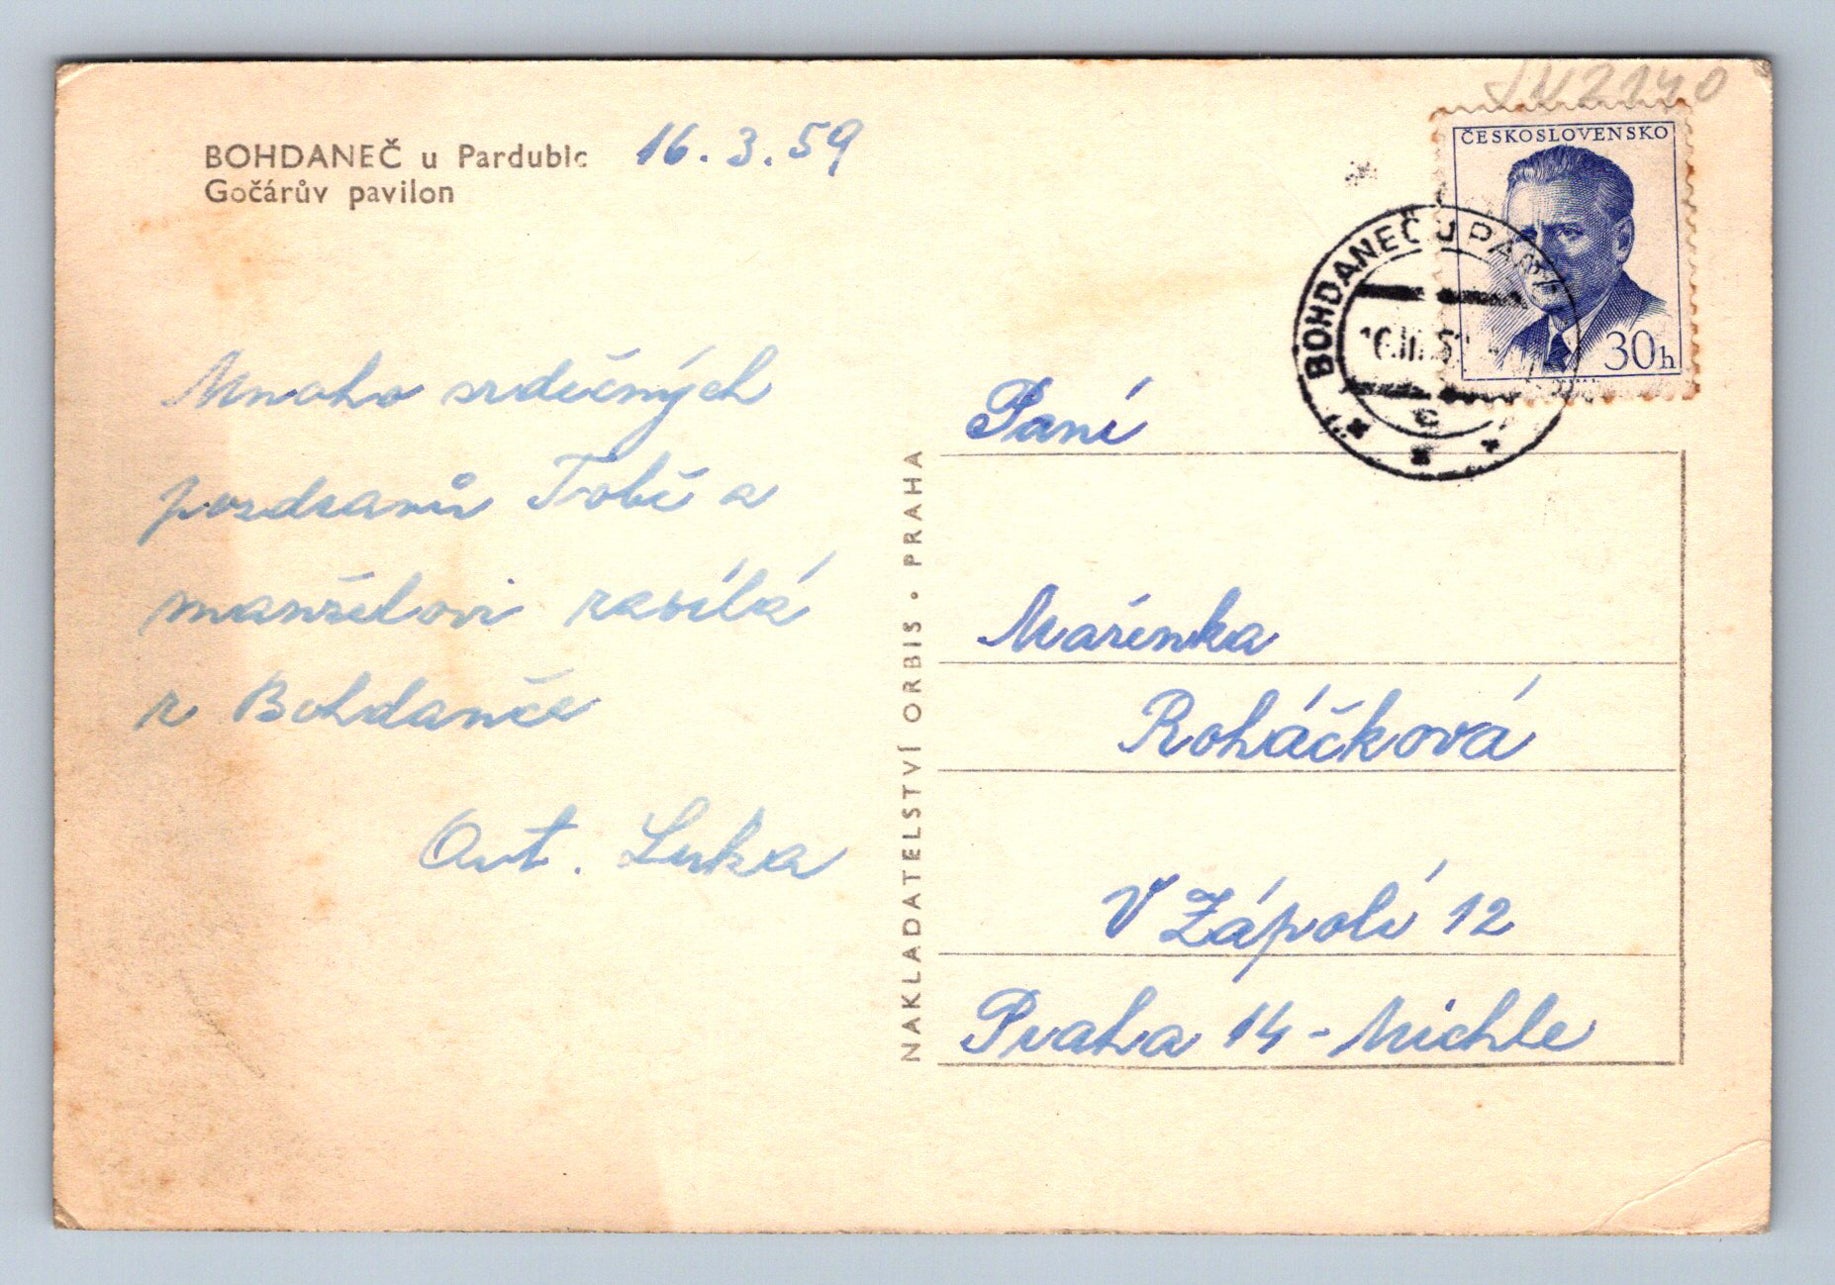 BOHDANEČ u Pardubic
Gočárův pavilon
16.3.59
Mnoho srdečných
pozdravů Tobě a
manželovi zasílá
z Bohdanče
Ant. Luka
NAKLADATELSTVÍ ORBIS • PRAHA
ČESKOSLOVENSKO
30h
BOHDANEČ U PARD
16.III.5
c
Paní
Mařenka
Roháčková
V Zápolí 12
Praha 14 - Michle
2140